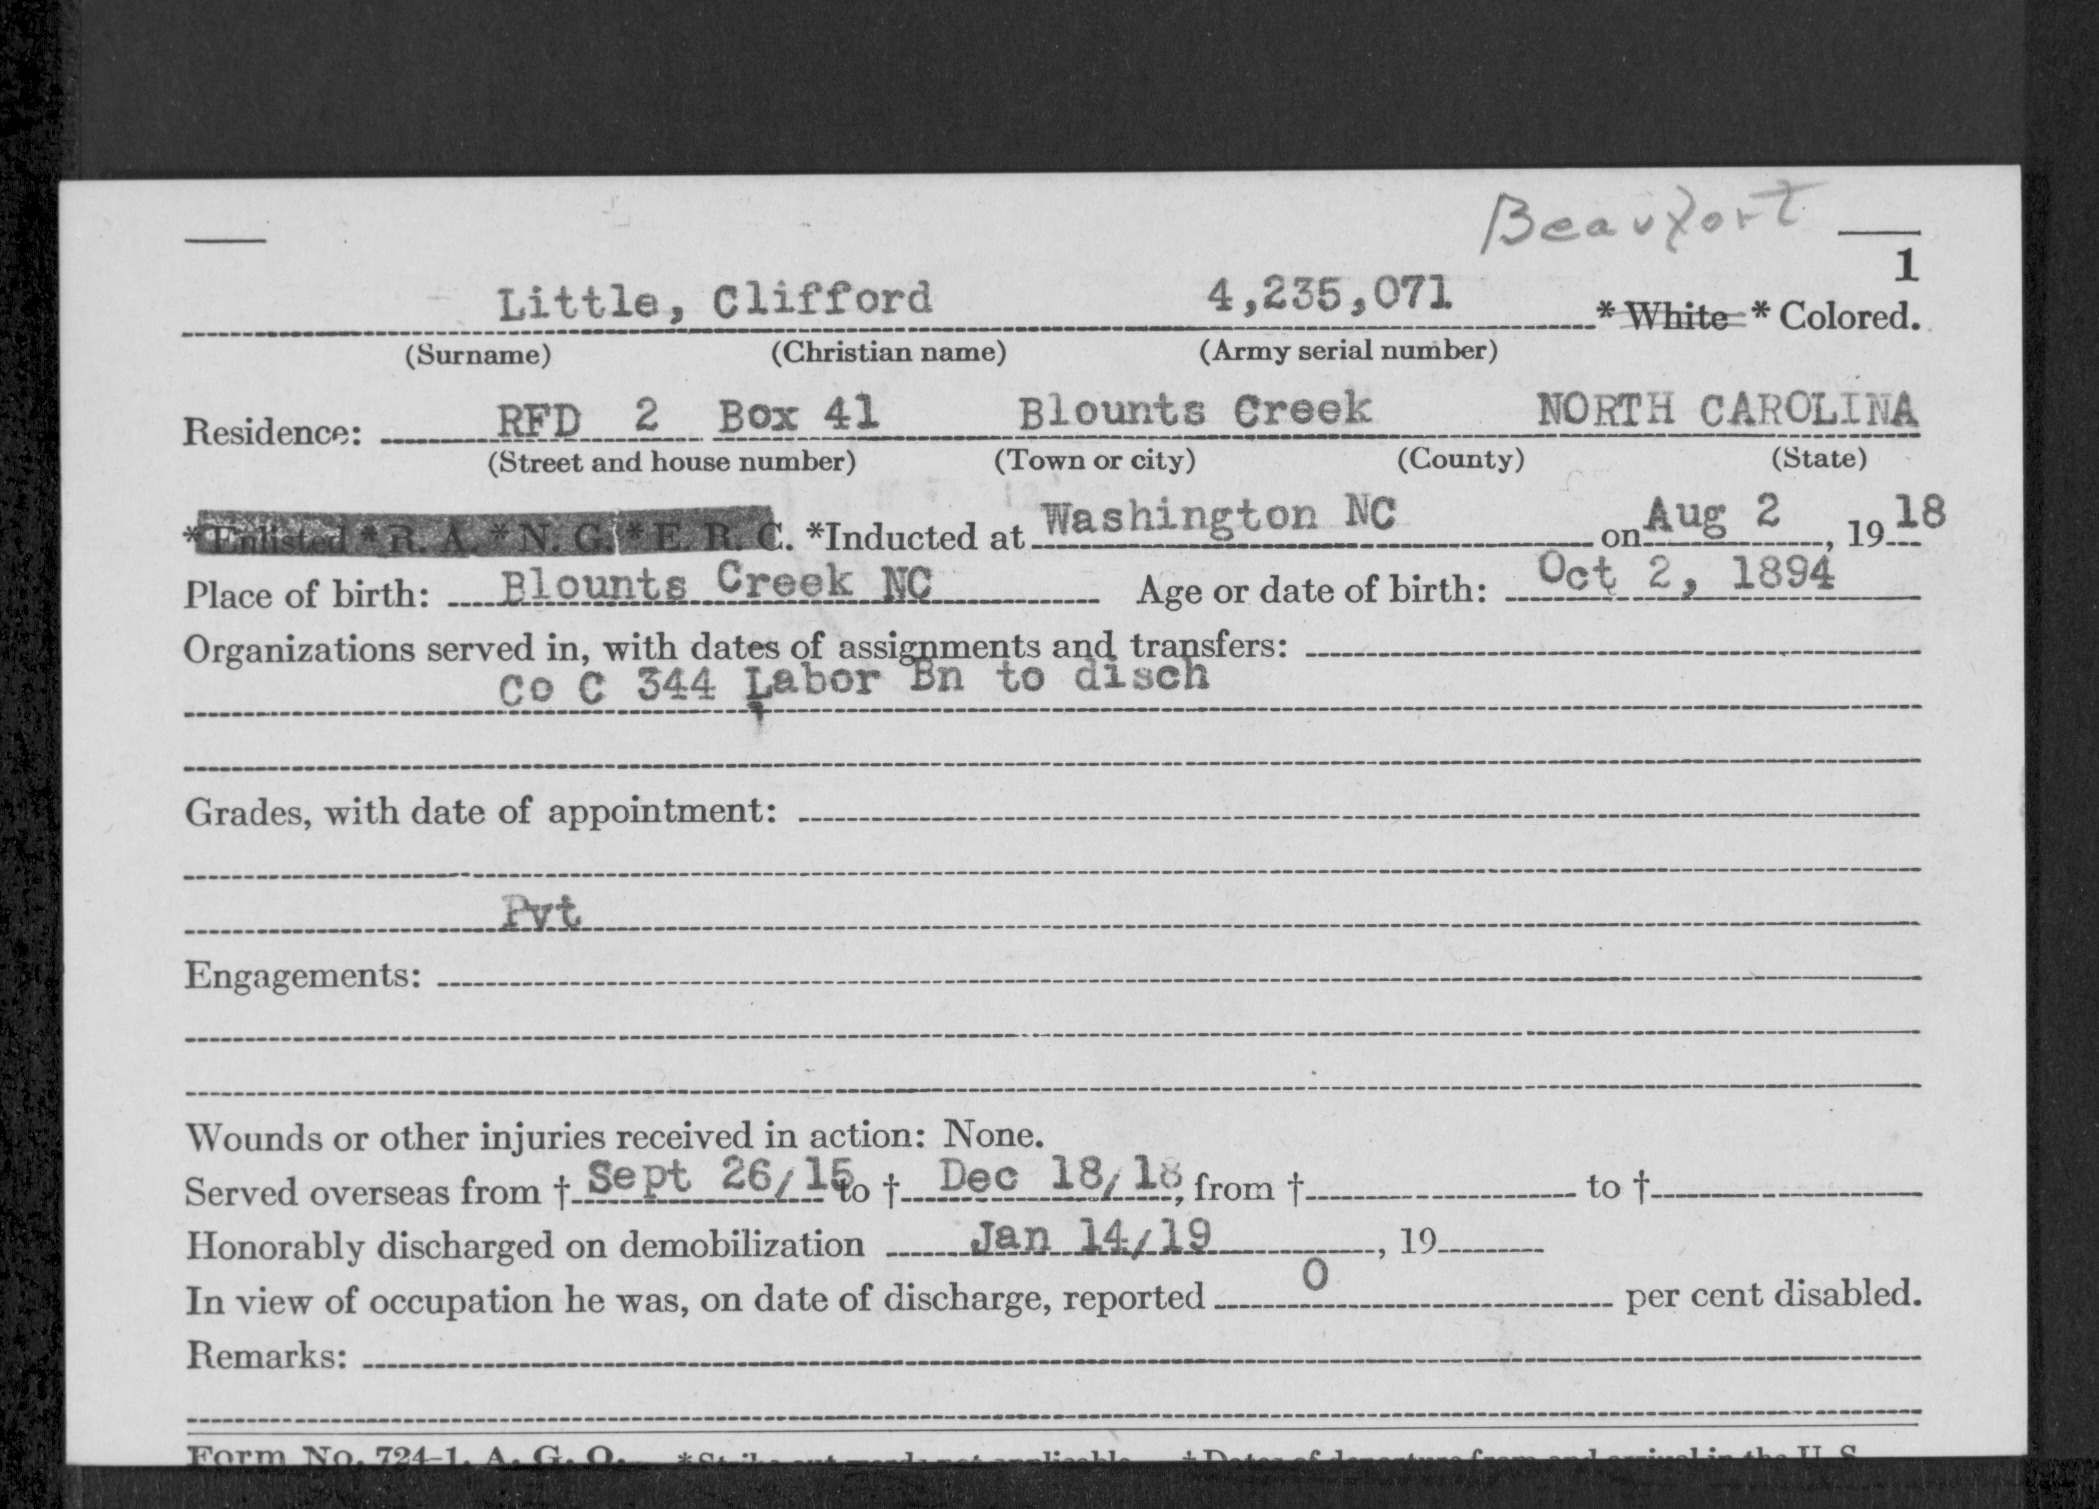 Beaufort
1
Little, Clifford 4,235,071 * White * Colored.
(Surname) (Christian name) (Army serial number)
Residence: RFD 2 Box 41 Blounts Creek NORTH CAROLINA
(Street and house number) (Town or city) (County) (State)
*Enlisted *R. A. *N. G. *E. R. C. *Inducted at Washington NC on Aug 2, 1918
Place of birth: Blounts Creek NC Age or date of birth: Oct 2, 1894
Organizations served in, with dates of assignments and transfers:
Co C 344 Labor Bn to disch
Grades, with date of appointment:
Pvt
Engagements:
Wounds or other injuries received in action: None.
Served overseas from † Sept 26/15 to † Dec 18/18, from † to †
Honorably discharged on demobilization Jan 14/19, 19
In view of occupation he was, on date of discharge, reported 0 per cent disabled.
Remarks:
Form No. 724-1, A. G. O. *Strike out words not applicable. †Dates of departure from and arrival in the U. S.